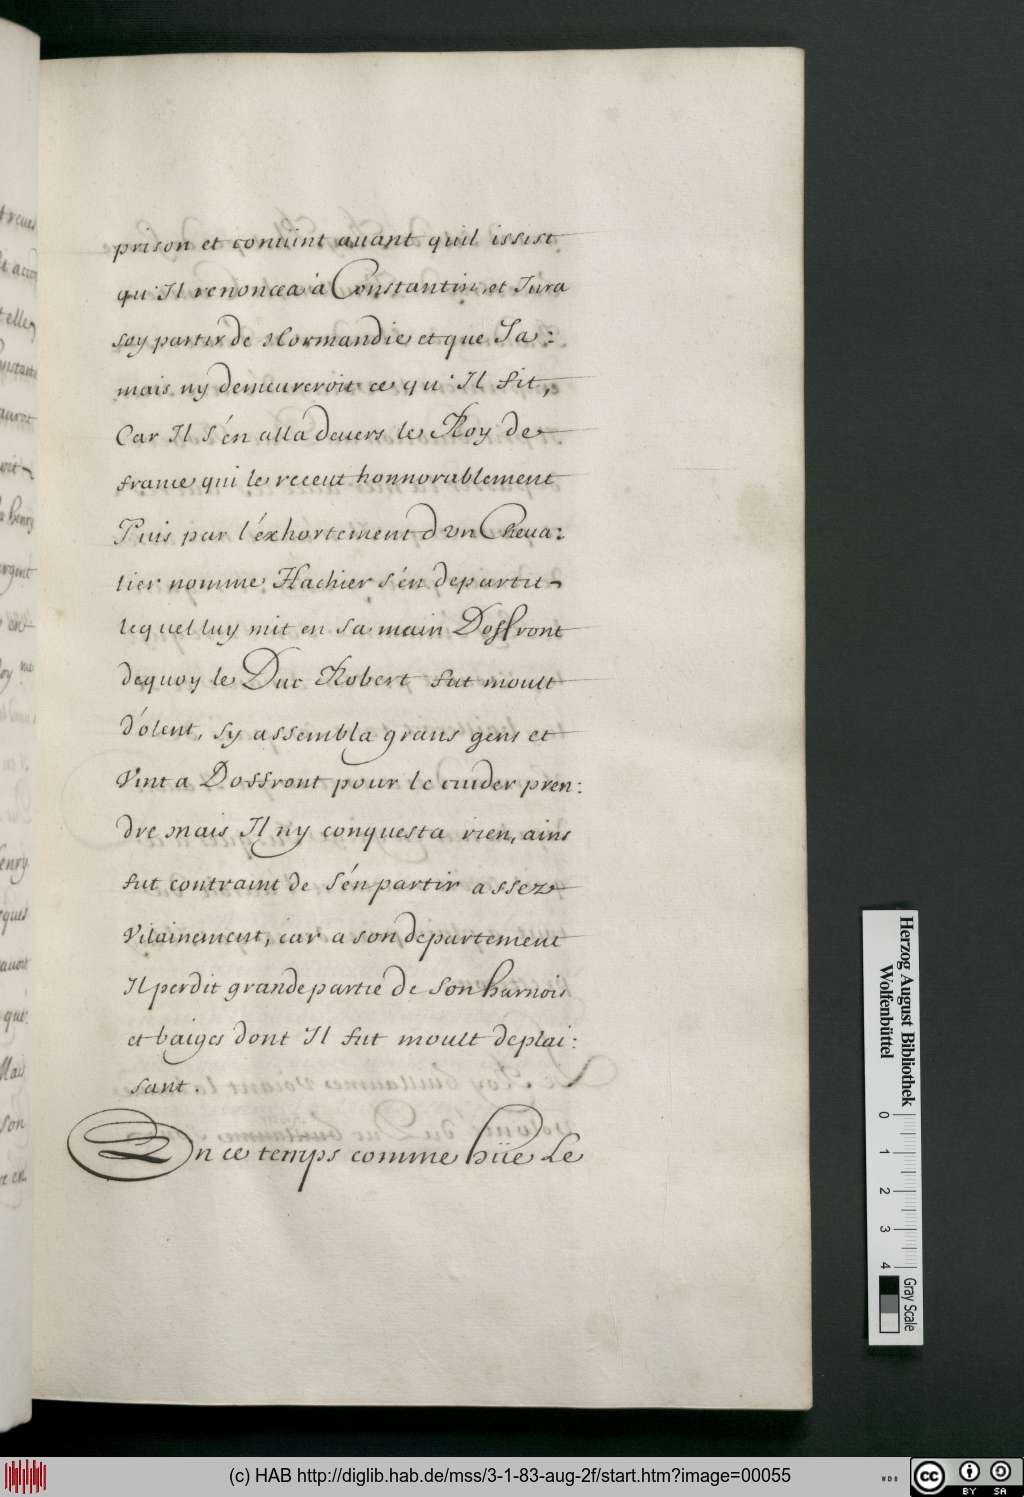 prison et conuint auant quil issist
qu'Il renoncea à Constantin, et Jura
soy partir de Normandie et que Ja:
mais ny demeureroit ce qu'Il fit,
Car Il s'én alla deuers le Roy de
france qui le receut honnorablement
Puis par l'éxhortement d'vn Cheua:
lier nomme Hachier s'én departit
lequel luy mit en sa main Doffront
dequoy le Duc Robert fut moult
d'olent, sy assembla grans gens et
Vint a Doffront pour le cuider pren:
dre mais Il ny conquesta rien, ains
fut contraint de s'én partir assez
Vilainement, car a son departement
Il perdit grande partie de son harnois
et baiges dont Il fut moult deplai:
sant.
En ce temps comme hüe Le
Herzog August Bibliothek
Wolfenbüttel
0 1 2 3 4
Gray Scale
(c) HAB http://diglib.hab.de/mss/3-1-83-aug-2f/start.htm?image=00055
cc BY SA